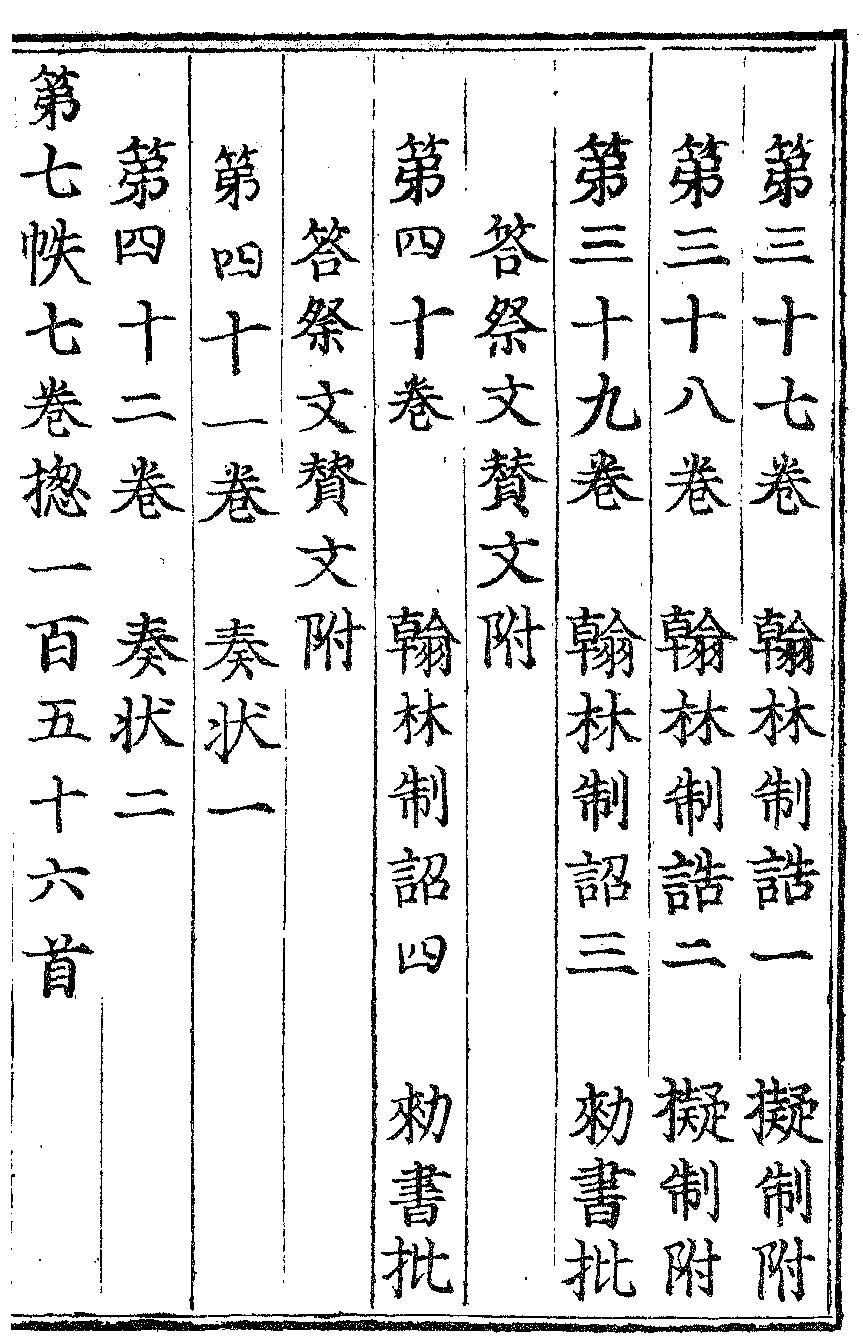 第三十七卷 翰林制誥一 擬制附
第三十八卷 翰林制誥二 擬制附
第三十九卷 翰林制詔三 勑書批
答祭文賛文附
第四十卷 翰林制詔四 勑書批
答祭文賛文附
第四十一卷 奏状一
第四十二卷 奏状二
第七帙七卷揔一百五十六首